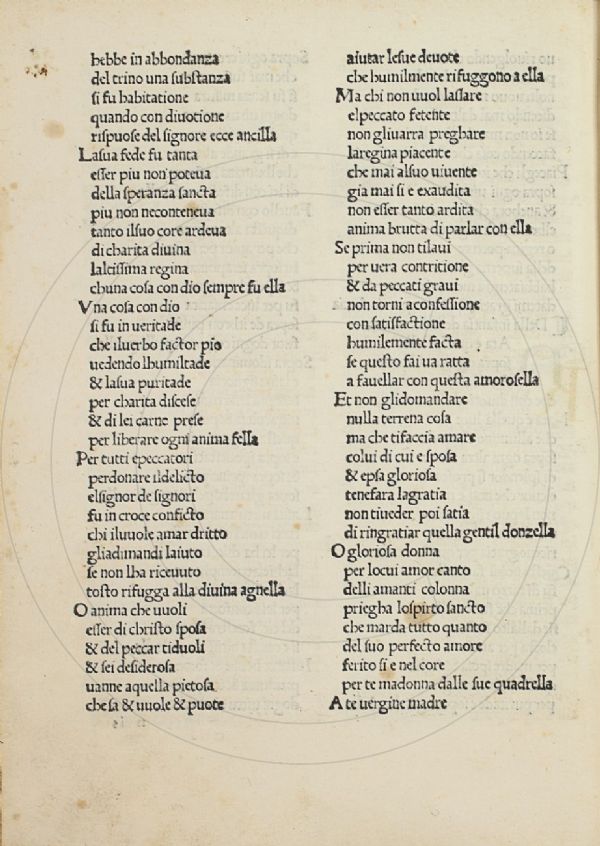 hebbe in abbondanza
del trino una ſubſtanza
ſi fu habitatione
quando con diuotione
riſpuoſe del ſignore ecce ancilla
Laſua fede fu tanta
eſſer piu non poteua
della ſperanza ſancta
piu non neconteneua
tanto ilſuo core ardeua
di charita diuina
lalciſſima regina
chuna coſa con dio ſempre fu ella
Vna coſa con dio
ſi fu in ueritade
che iluerbo factor pio
uedendo lhumiltade
& laſua puritade
per charita diſceſe
& di lei carne preſe
per liberare ogni anima fella
Per tutti epeccatori
perdonare ildelicto
elſignor de ſignori
fu in croce conficto
chi iluuole amar dritto
gliadimandi laiuto
ſe non lha riceuuto
toſto rifugga alla diuina agnella
O anima che uuoli
eſſer di chriſto ſpoſa
& del peccar tiduoli
& ſei deſideroſa
uanne aquella pietoſa
che ſa & uuole & puote
aiutar leſue deuote
che humilmente rifuggono a ella
Ma chi non uuol laſſare
elpeccato fetente
non gliuarra preghare
laregina piacente
che mai alſuo uiuente
gia mai ſi e exaudita
non eſſer tanto ardita
anima brutta di parlar con ella
Se prima non tilaui
per uera contritione
& da peccati graui
non torni aconfeſſione
con ſatiſfactione
humilemente facta
ſe queſto fai ua ratta
a fauellar con queſta amoroſella
Et non glidomandare
nulla terrena coſa
ma che tifaccia amare
colui di cui e ſpoſa
& epſa glorioſa
tenefara lagratia
non tiueder poi ſatia
di ringratiar quella gentil donzella
O glorioſa donna
per locui amor canto
delli amanti colonna
priegha loſpirto ſancto
che marda tutto quanto
del ſuo perfecto amore
ferito ſi e nel core
per te madonna dalle ſue quadrella
A te uergine madre